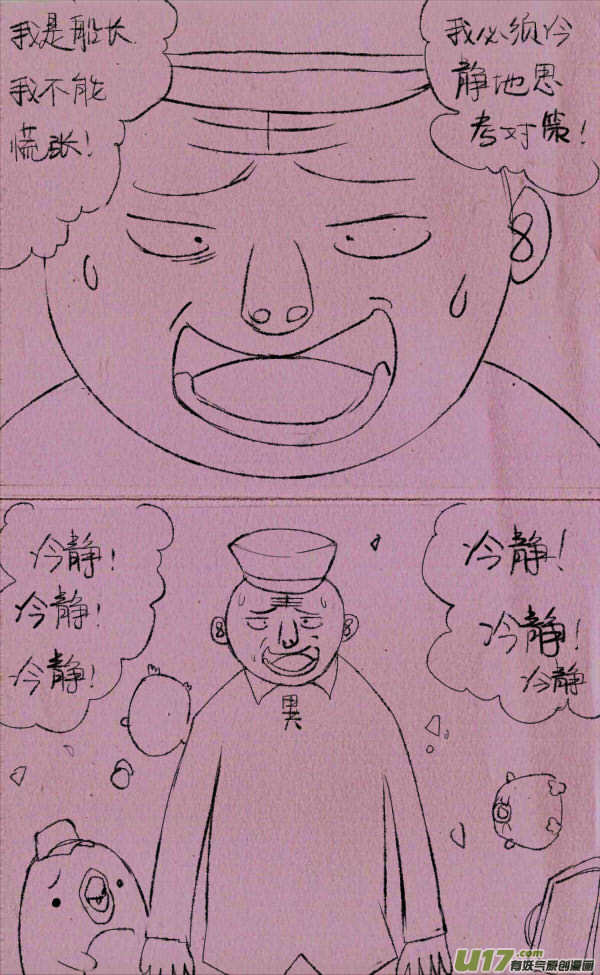 我是船长
我不能
慌张！
我必须冷
静地思
考对策！
冷静！
冷静！
冷静！
冷静！
冷静！
冷静
男
U17.com
有妖气原创漫画